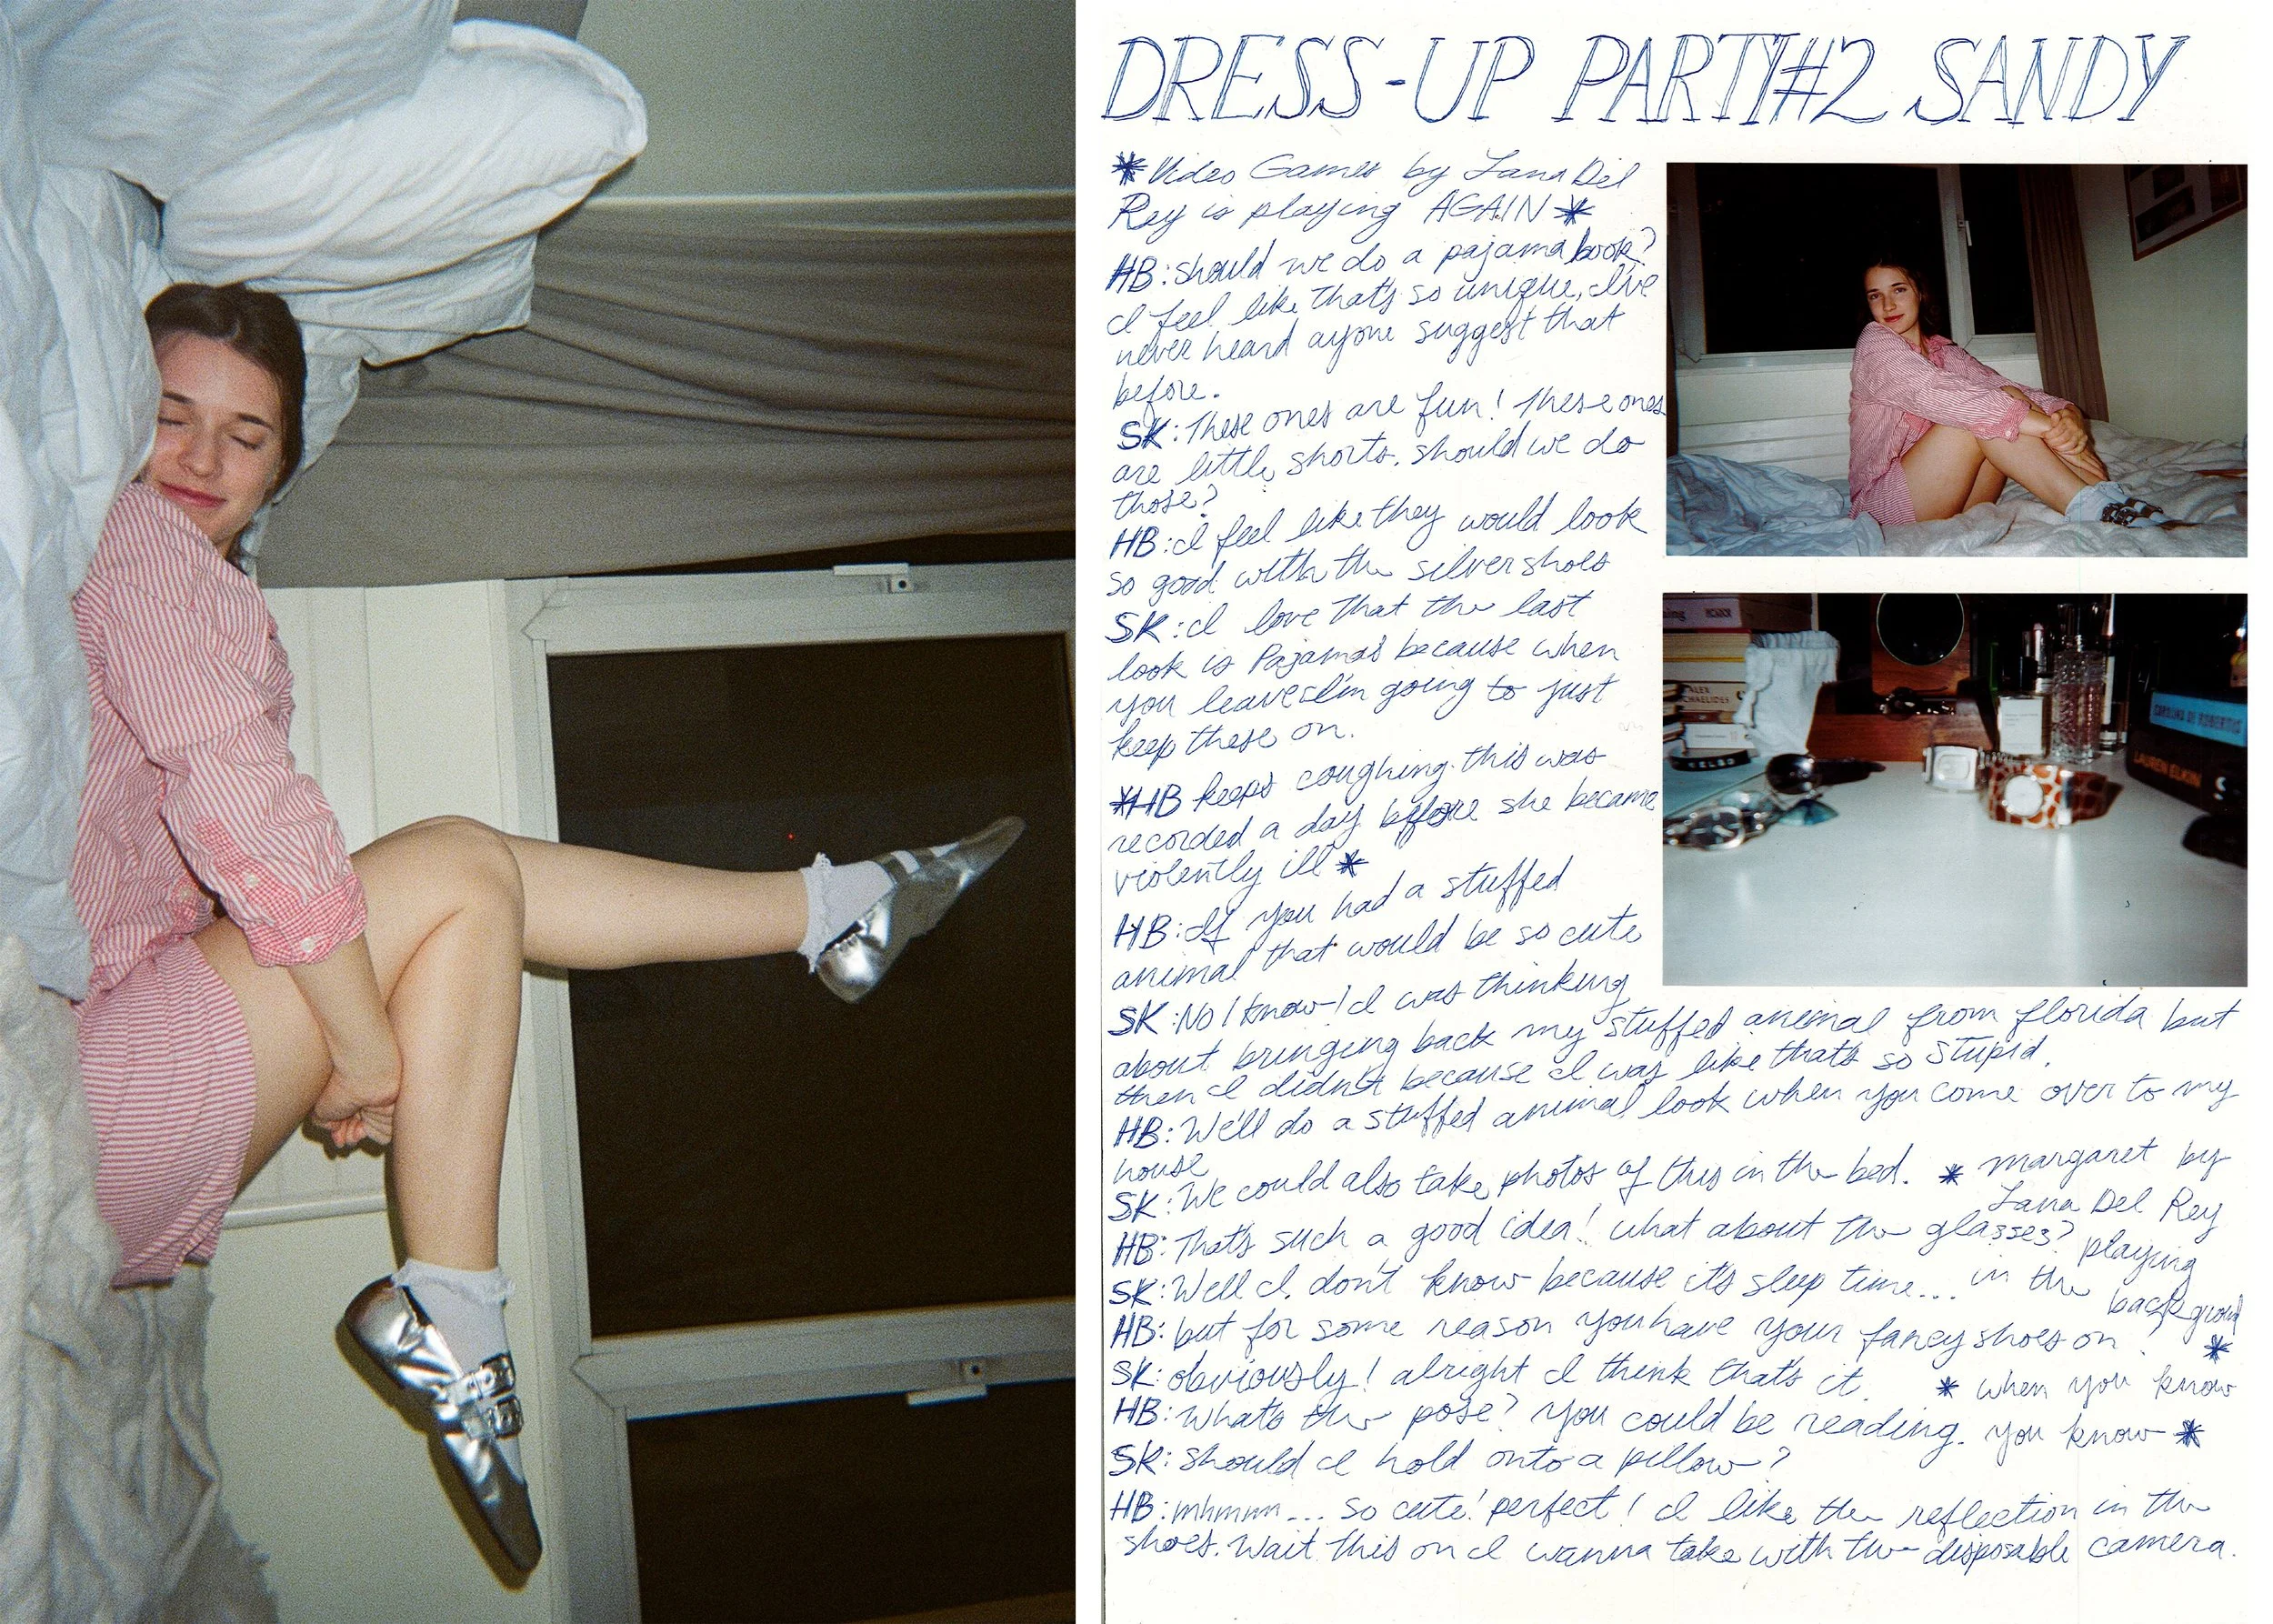 DRESS-UP PARTY#2 SANDY
*Video Games by Lana Del
Rey is playing AGAIN*
HB: should we do a pajama book?
I feel like that's so unique, I've
never heard ayone suggest that
before.
SK: These ones are fun! These ones
are little shorts. should we do
those?
HB: I feel like they would look
so good with the silver shoes
SK: I love that the last
look is Pajamas because when
you leave I'm going to just
keep these on.
*HB keeps coughing. this was
recorded a day before she became
violently ill*
HB: If you had a stuffed
animal that would be so cute
SK: No I know! I was thinking
about bringing back my stuffed animal from florida but
then I didn't because I was like that's so stupid.
HB: We'll do a stuffed animal look when you come over to my
house
SK: We could also take photos of this in the bed.
* margaret by
Lana Del Rey
playing
in the
background
*
HB: That's such a good idea! what about the glasses?
SK: Well I don't know because it's sleep time...
HB: but for some reason you have your fancy shoes on!
SK: obviously! alright I think that's it.
* when you know
you know *
HB: what's the pose? You could be reading.
SK: should I hold onto a pillow?
HB: mhmmm... so cute! perfect! I like the reflection in the
shoes. Wait this on I wanna take with the disposable camera.
ALEX
MICHAELIDES
KELSO
CAROLINA DE ROBERTIS
LAUREN ELKIN